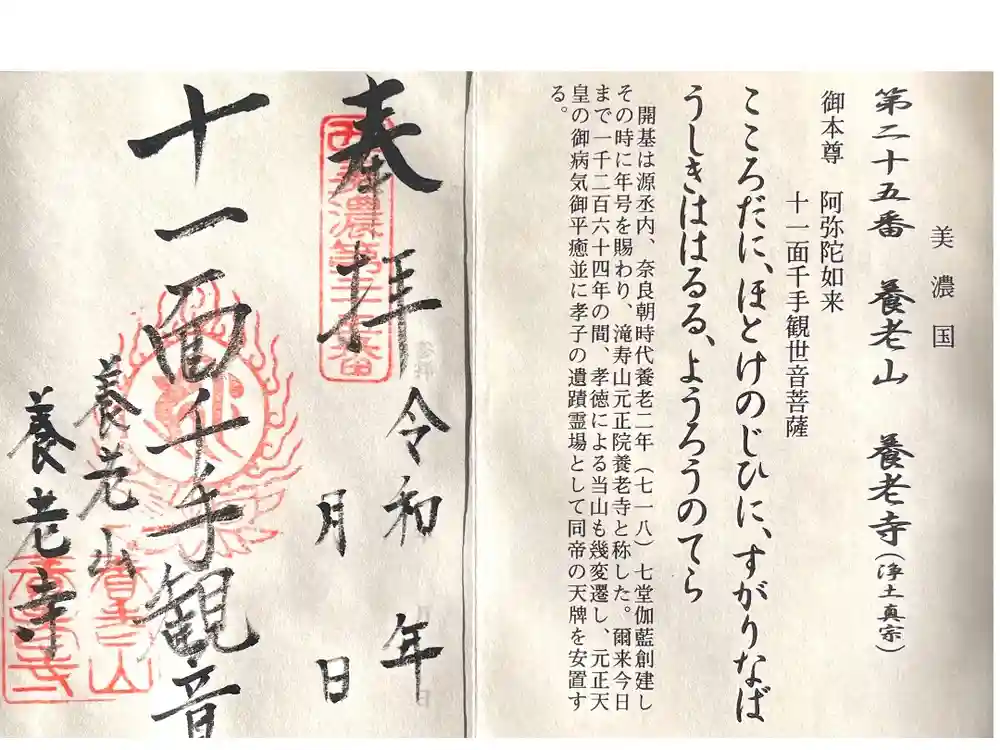 美濃国
第二十五番 養老山 養老寺(浄土真宗)
御本尊 阿弥陀如来
十一面千手観世音菩薩
こころだに、ほとけのじひに、すがりなば
うしきははるる、ようろうのてら
開基は源丞内、奈良朝時代養老二年(七一八)七堂伽藍創建し
その時に年号を賜わり、滝寿山元正院養老寺と称した。爾来今日
まで一千二百六十四年の間、孝徳による当山も幾変遷し、元正天
皇の御病気御平癒並に孝子の遺蹟霊場として同帝の天牌を安置す
る。
令和 年
奉拝 月 日
十一面千手観音
養老山
養老寺